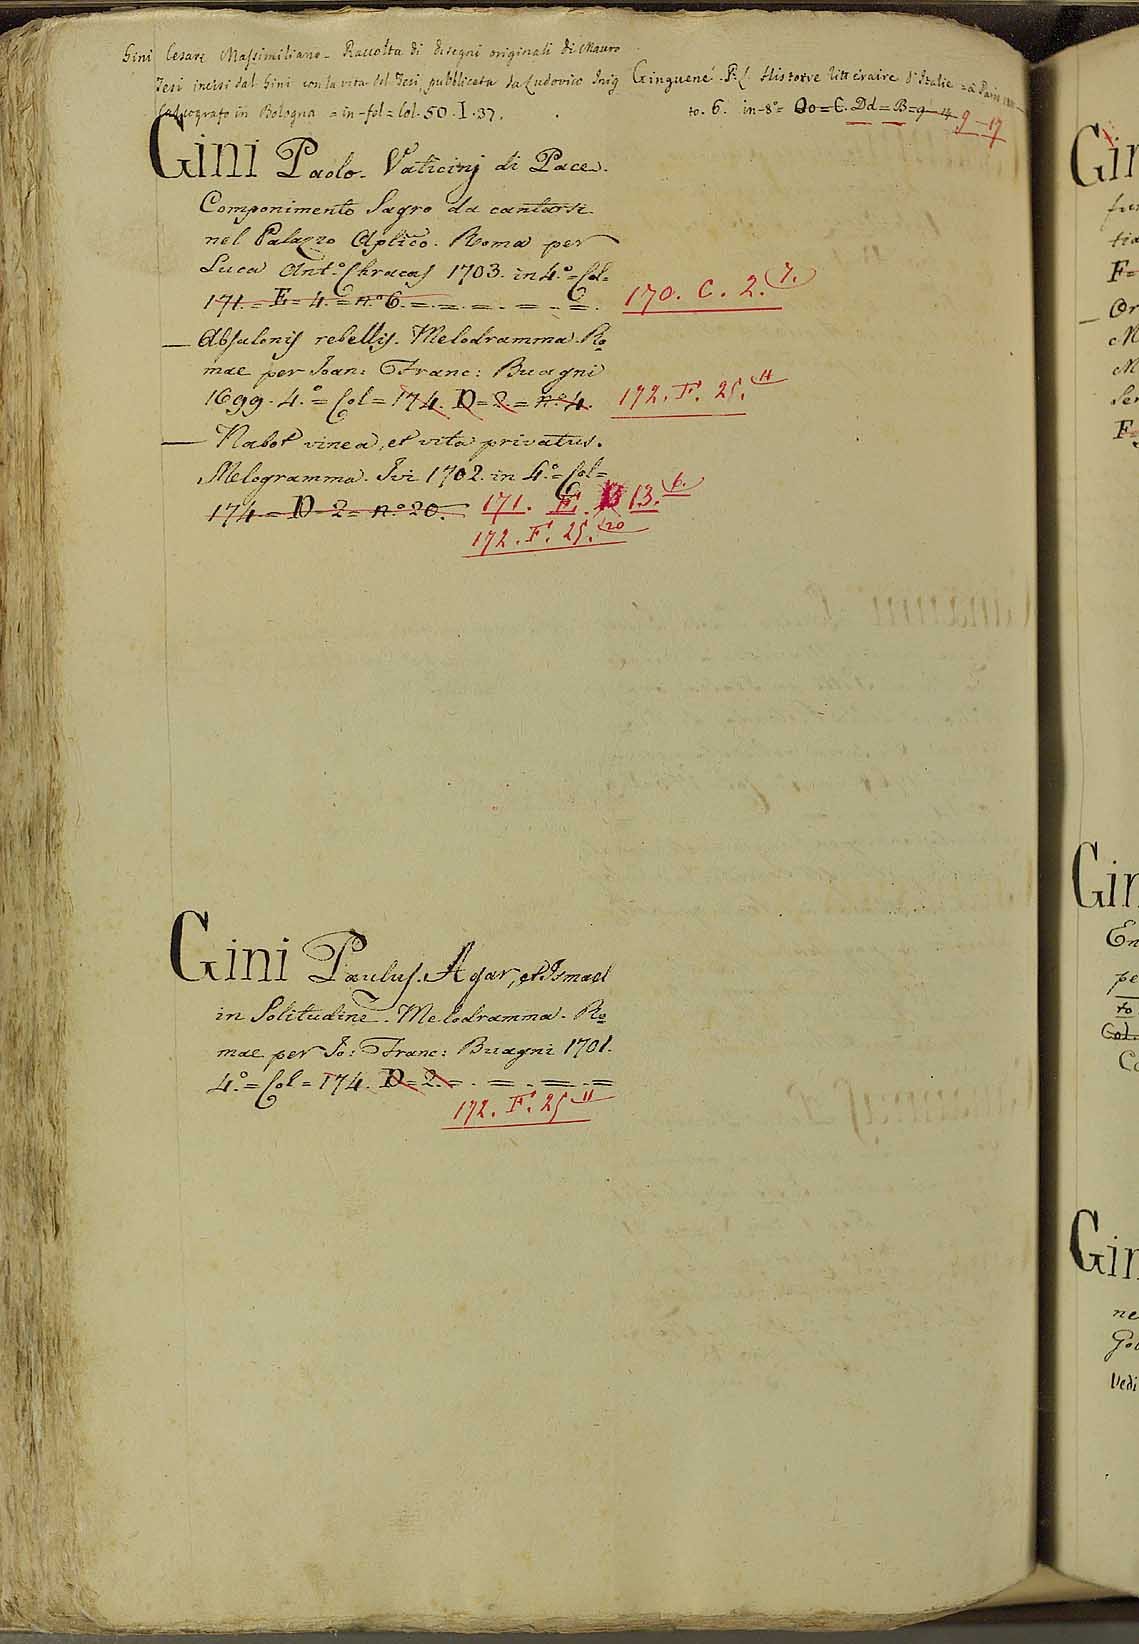 Gini Cesare Massimiliano - Raccolta di disegni originali di Mauro
Tesi incisi dal Gini con la vita del Tesi, pubblicata da Ludovico Inig
Calcografo in Bologna = in-fol = Col. 50. I. 37.
Ginguené. P. L. Histoire littéraire d'Italie = à Paris
to. 6. in-8° = C. Dd = B = 9 - 14 9 - 17
Gini Paolo. Vaticinj di Pace.
Componimento Sagro da cantarsi
nel Palazzo Aplico. Roma per
Luca Ant.° Chracas 1703. in 4.° = Col =
171. = E = 4 = n.° 6. = . = . = . = . = . = .
170. C. 2. 7.
— Absalonis rebellis. Melodramma. Ro
mae per Joan: Franc: Buagni
1699. 4.° = Col = 174. D = 2. = n.° 4.
172. F. 25. 4
— Nabot vinea, et vita privatus.
Melogramma. Ivi 1702. in 4.° = Col =
174. = D = 2 = n.° 20.
171. E. 13. 6.
172. F. 25. 20
Gini Paulus. Agar, et Ismael
in Solitudine. Melodramma. Ro
mae per Jo: Franc: Buagni 1701.
4.° = Col = 174. D = 2. = . = . = . =
172. F. 25 11
Gin
Or
F=
Gin
En
pe
to
Col.
Gin
ne
Vedi